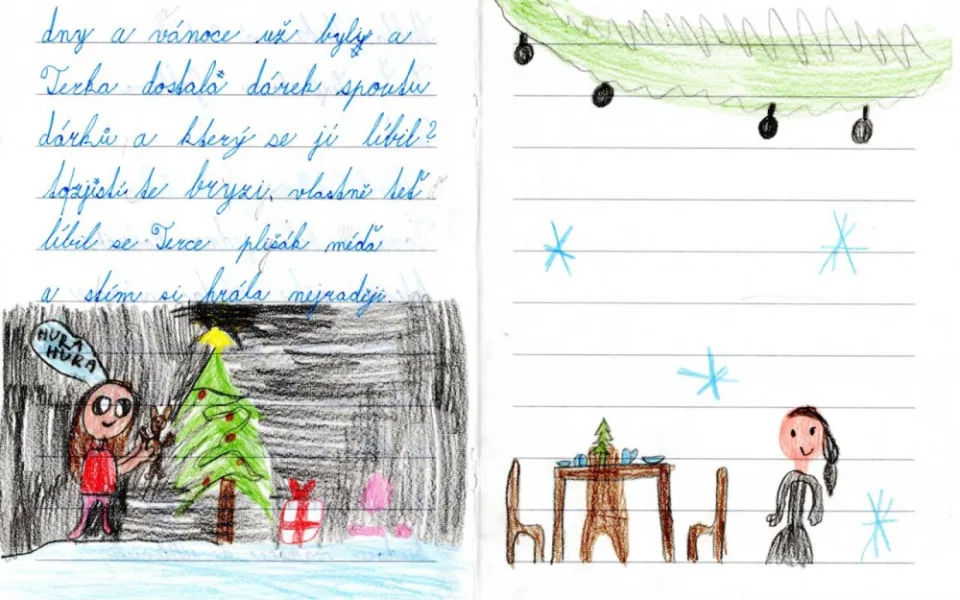 dny a vánoce už byly a
Terka dostala dárek spoustu
dárků a který se jí líbil?
to zjistíte bryzi, vlastně teď
líbil se Terce plišák méďa
a stím si hrála nejraději
HURÁ
HURÁ